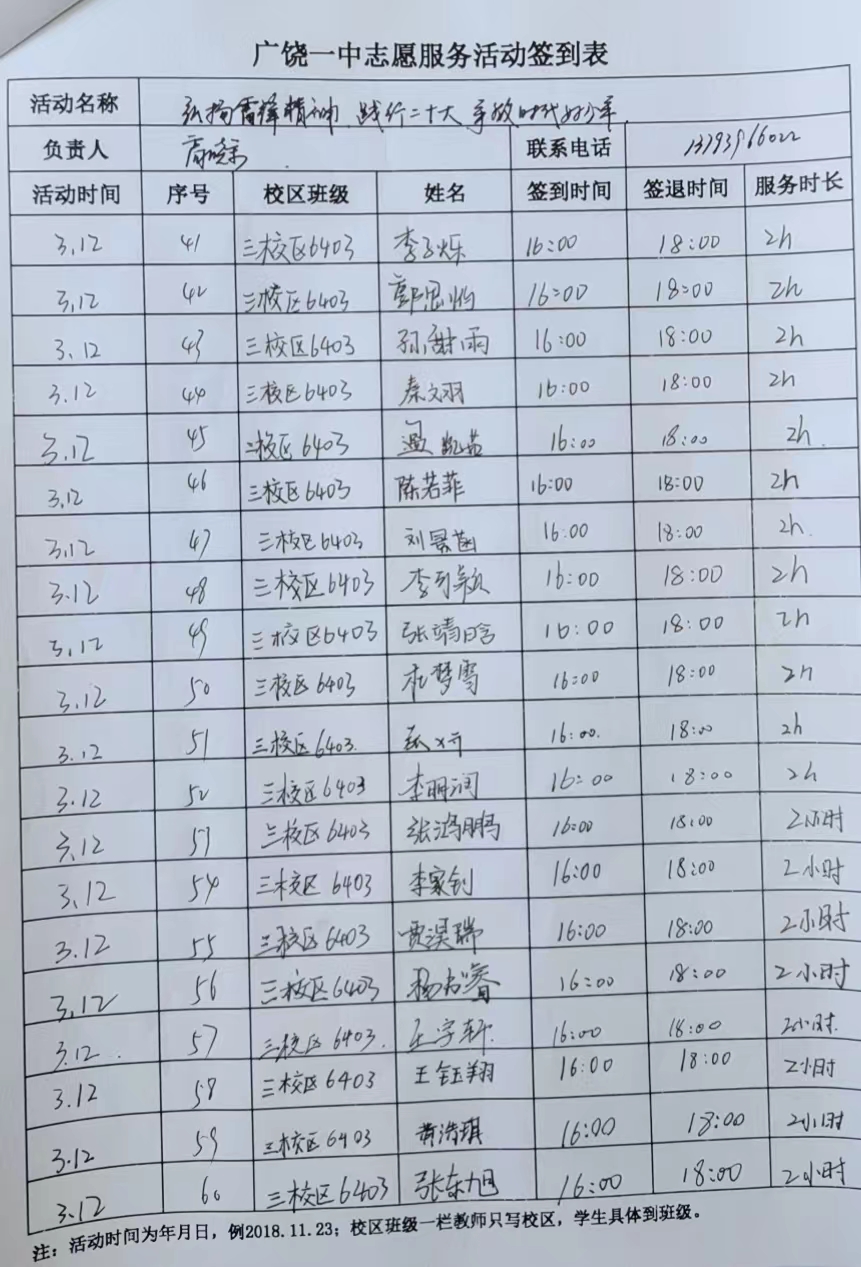 广饶一中志愿服务活动签到表
活动名称 弘扬雷锋精神 践行二十大 争做时代好少年
负责人 联系电话 13793966022
活动时间 序号 校区班级 姓名 签到时间 签退时间 服务时长
3.12 41 三校区6403 李子烁 16:00 18:00 2h
3.12 42 三校区6403 郭思灼 16:00 18:00 2h
3.12 43 三校区6403 孙谢雨 16:00 18:00 2h
3.12 44 三校区6403 秦文羽 16:00 18:00 2h
3.12 45 三校区6403 16:00 18:00 2h.
3.12 46 三校区6403 陈若菲 16:00 18:00 2h
3.12 47 三校区6403 刘景菡 16:00 18:00 2h.
3.12 48 三校区6403 李可颖 16:00 18:00 2h
3.12 49 三校区6403 张靖晗 16:00 18:00 2h
3.12 50 三校区6403 杜梦雪 16:00 18:00 2h
3.12 51 三校区6403. 16:00. 18:00 2h
3.12 52 三校区6403 李明润 16:00 18:00 2h
3.12 53 三校区6403 张鸿鹏 16:00 18:00 2小时
3.12 54 三校区6403 李家钊 16:00 18:00 2小时
3.12 55 三校区6403 贾淏瑞 16:00 18:00 2小时
3.12 56 三校区6403 16:00 18:00 2小时
3.12. 57 三校区6403. 王宇轩. 16:00 18:00 2小时.
3.12 58 三校区6403 王钰翔 16:00 18:00 2小时
3.12 59 三校区6403 黄浩琪 16:00 18:00 2小时
3.12 60 三校区6403 张东旭 16:00 18:00 2小时
注：活动时间为年月日，例2018.11.23；校区班级一栏教师只写校区，学生具体到班级。